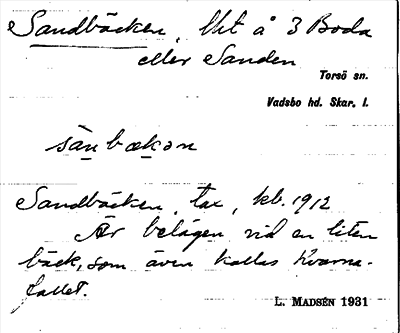 Sandbäcken, Uht å 3 Boda
eller Sanden
Torsö sn.
Vadsbo hd. Skar. l.
sänbækən
Sandbäcken, tax, kb. 1912
Är belägen vid en liten
bäck, som även kallas Kvarna-
fallet.
L. MADSÉN 1931